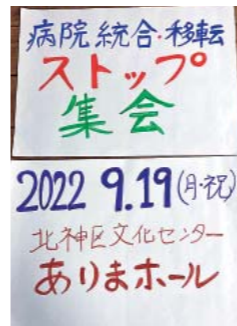 病院統合・移転
ストップ
集会
2022 9.19(月・祝)
北神区文化センター
ありまホール